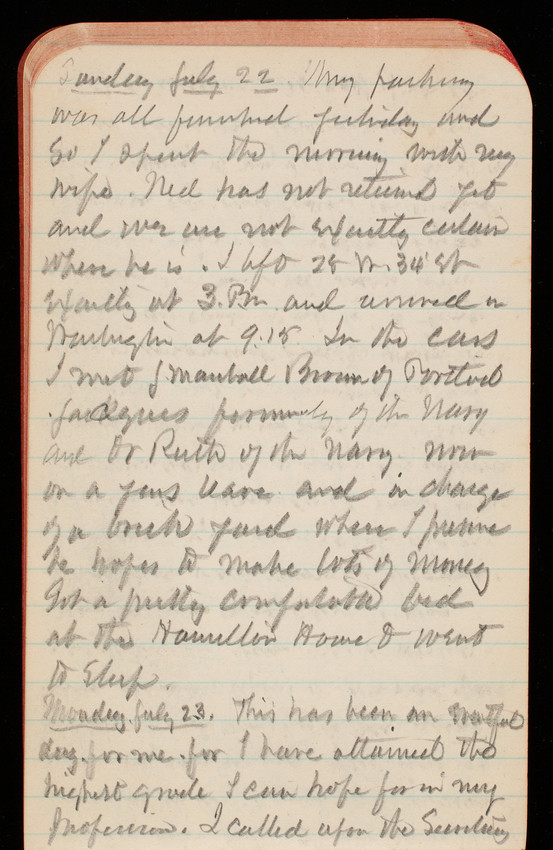 Sunday July 22. My packing
was all finished yesterday and
so I spent the morning with my
wife. Ned has not returned yet
and we are not exactly certain
where he is. I left 28 W. 34 St
exactly at 3. P.M. and arrived in
Washington at 9.15. In the cars
I met J Marshall Brown of Portland
Jacques formerly of the Navy
and Dr Ruth of the Navy now
on a years leave and in charge
of a brick yard where I presume
he hopes to make lots of money
Got a pretty comfortable bed
at the Hamilton House & went
to sleep.
Monday July 23. This has been an eventful
day for me for I have attained the
highest grade I can hope for in my
profession. I called upon the Secretary